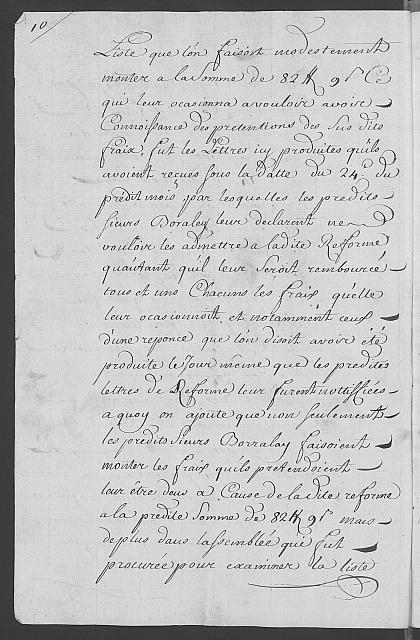 10
Liste que l'on faisoit modestement
monter a la somme de 82 ₶ 9 s Ce
qui leur ocasionna a vouloir avoir
Connoissance des pretentions des sus dits
fraix, fut les Lettres icy produites qu'ils
avoient reçues sous la datte du 24e du
prédit mois, par lesquelles les predits
sieurs Boralay leur declarent ne
vouloir les admettre a ladite Refforme
qu'autant qu'il leur seroit rembourcé
tous et uns Chacuns les fraix qu'elle
leur ocasionnoit et notamment ceux
d'une reponce que l'on disoit avoir été
produite le jour même que les predites
lettres de Reforme leur furent nottiffiées
a quoy on ajoute que non seulement
les predits sieurs Borralay faisoient
monter les fraix qu'ils pretendoient
leur être deus a Cause de ladite reforme
a la predite somme de 82 ₶ 9 s mais
de plus dans l'assemblée qui fut
procurée pour examiner la liste